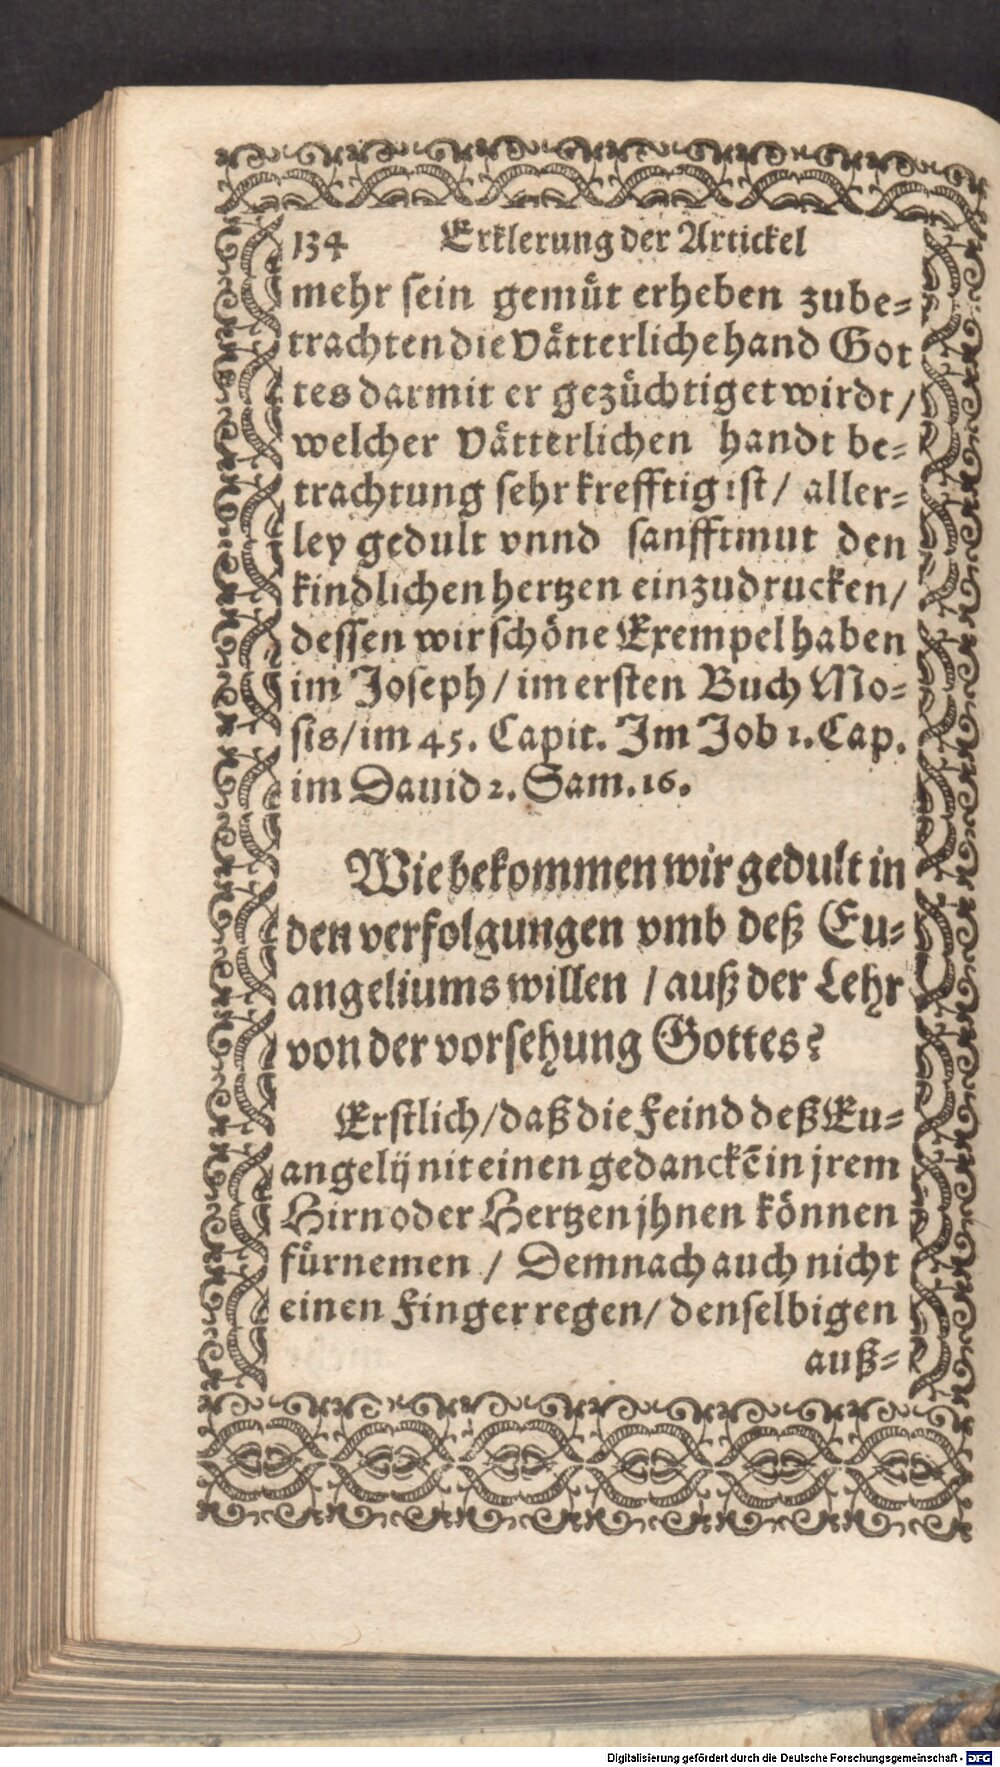 134 Erklerung der Artickel
mehr sein gemuͤt erheben zube=
trachten die Vaͤtterliche hand Got
tes darmit er gezuͤchtiget wirdt /
welcher Vaͤtterlichen handt be=
trachtung sehr krefftig ist / aller=
ley gedult vnnd sanfftmut den
kindlichen hertzen einzudrucken /
dessen wir schoͤne Exempel haben
im Joseph / im ersten Buch Mo=
sis / im 45. Capit. Im Job 1. Cap.
im Dauid 2. Sam. 16.
Wie bekommen wir gedult in
den verfolgungen vmb deß Eu=
angeliums willen / auß der Lehr
von der vorsehung Gottes?
Erstlich / daß die Feind deß Eu=
angelij nit einen gedanckē in jrem
Hirn oder Hertzen jhnen koͤnnen
fuͤrnemen / Demnach auch nicht
einen Finger regen / denselbigen
auß=
Digitalisierung gefördert durch die Deutsche Forschungsgemeinschaft - DFG